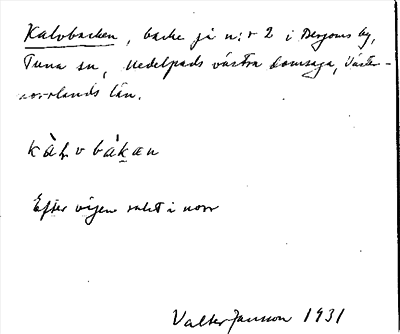 Kalvbacken, backe på n:r 2 i Bergoms by,
Tuna sn, Medelpads västra domsaga, Väster-
norrlands län.
kàḷvbàkan
Efter vägen rakt i norr
Valter Jansson 1931